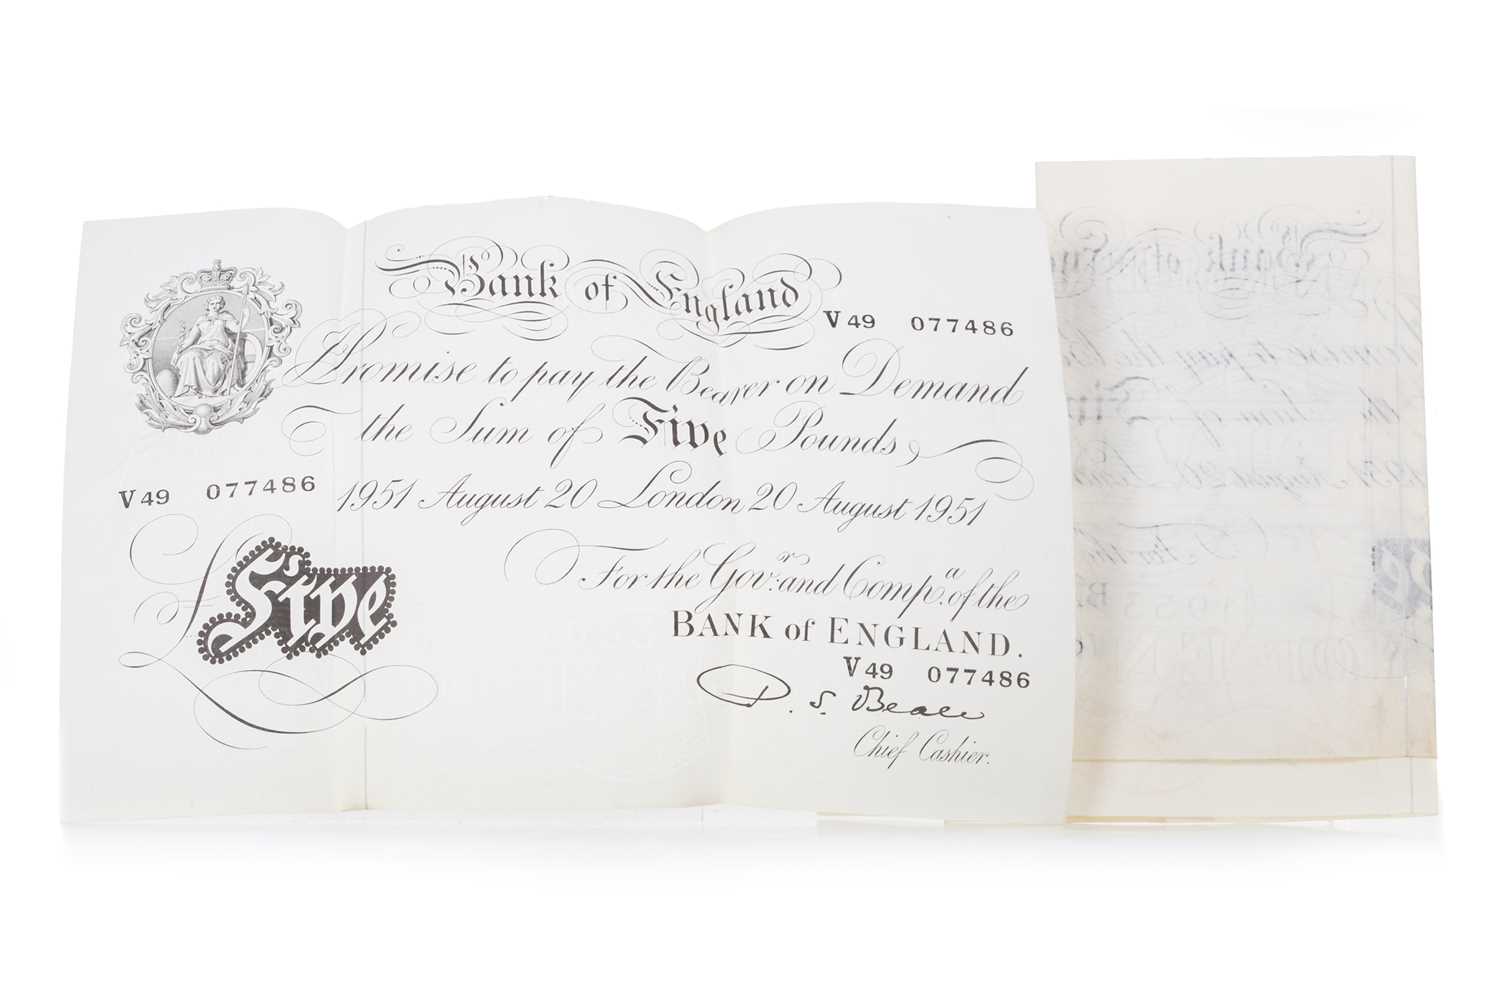 Bank of England
V49 077486
I Promise to pay the Bearer on Demand
the Sum of Five Pounds
V49 077486
1951 August 20 London 20 August 1951
£Five
For the Govr. and Compa. of the
BANK of ENGLAND.
V49 077486
P. S. Beale
Chief Cashier.
Bank of
Promise to pay the
the Sum of Five
1951 August 20
For the